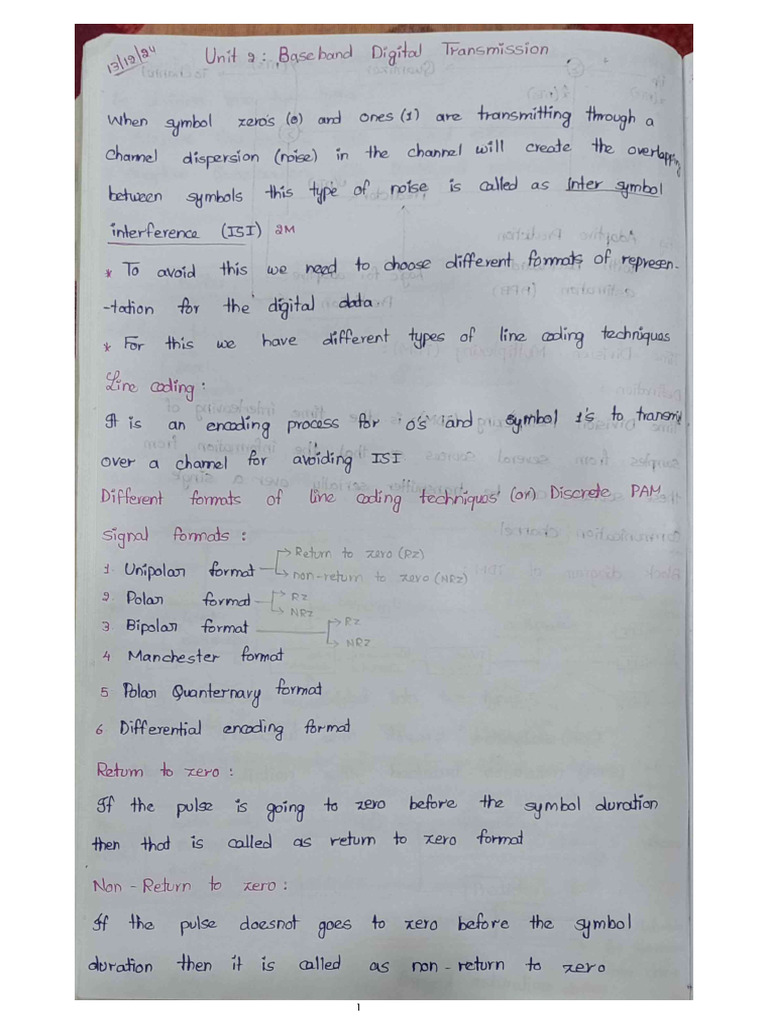 13/12/24
Unit 2 : Baseband Digital Transmission
When symbol zero's (0) and ones (1) are transmitting through a
channel dispersion (noise) in the channel will create the overlapping
between symbols this type of noise is called as Inter symbol
interference (ISI) 2M
* To avoid this we need to choose different formats of represen-
-tation for the digital data.
* For this we have different types of line coding techniques
Line coding :
It is an encoding process for 'o's' and symbol 1's to transmit
over a channel for avoiding ISI
Different formats of line coding techniques (or) Discrete PAM
signal formats :
1. Unipolar format → Return to zero (RZ)
→ non-return to zero (NRZ)
2. Polar format → RZ
→ NRZ
3. Bipolar format → RZ
→ NRZ
4 Manchester format
5 Polar Quanternary format
6 Differential encoding format
Return to zero :
If the pulse is going to zero before the symbol duration
then that is called as return to zero format
Non - Return to zero :
If the pulse doesnot goes to zero before the symbol
duration then it is called as non - return to zero
1